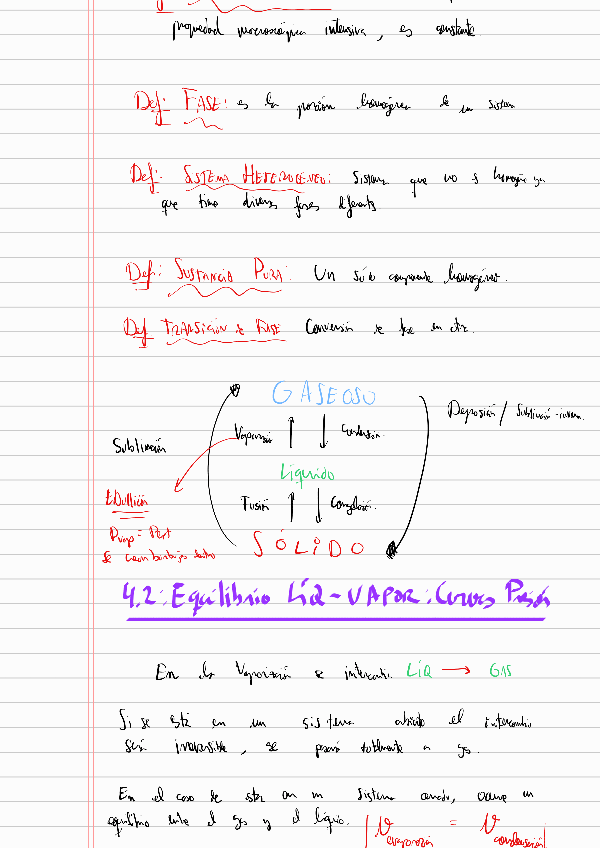 propiedad macroscópica intensiva, es constante
Def: FASE: es la porción homogénea de un sistema
Def: SISTEMA HETEROGÉNEO: Sistema que no es homogéneo ya
que tiene diversas fases diferentes
Def: SUSTANCIA PURA: Un sólo componente homogéneo.
Def TRANSICIÓN de FASE Conversión de fase en otra.
GASEOSO
Deposición / Sublimación-inversa
Sublimación
Vaporización
Condensación
Líquido
Ebullición
Fusión
Congelación
Pvap = Pext
Se crean burbujas dentro
SÓLIDO
4.2: Equilibrio LÍQ-VAPOR: Curvas Presión
En la Vaporización se intercambia LÍQ → GAS
Si se está en un sistema abierto el intercambio
será irreversible, se pasará totalmente a gas.
En el caso de estar en un sistema cerrado, ocurre un
equilibrio entre el gas y el líquido. V evaporación = V condensación